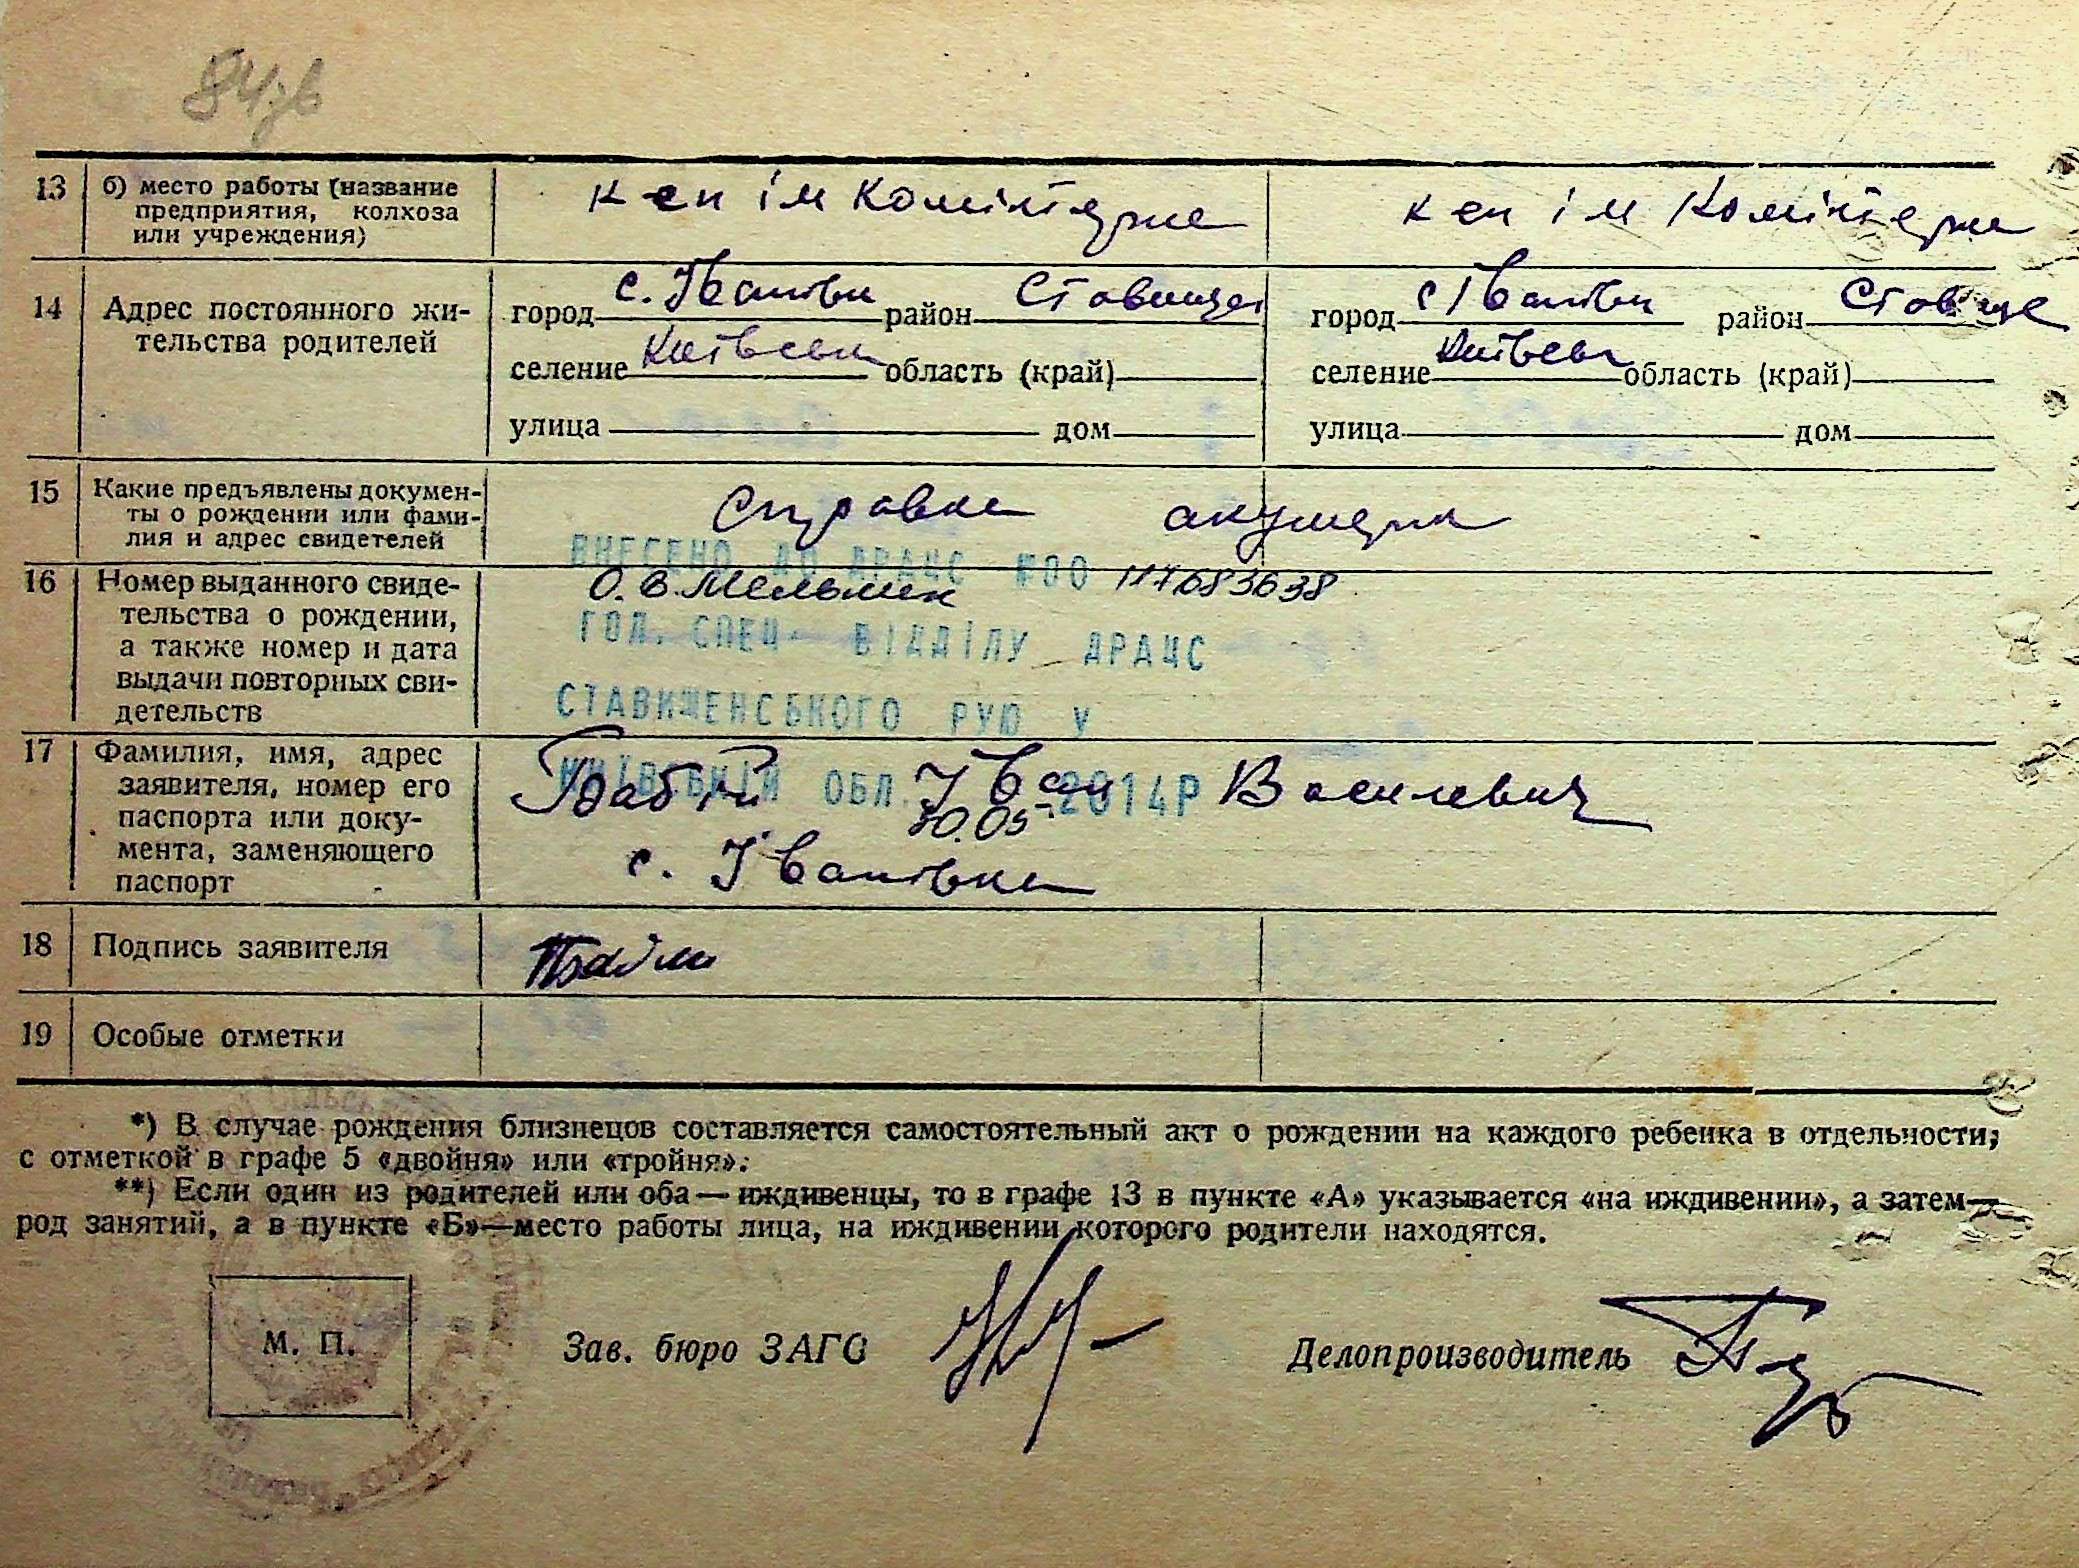 84зв
13 б) место работы (название
предприятия, колхоза
или учреждения)
к сп ім Комінтерна
к сп ім Комінтерна
14 Адрес постоянного жи-
тельства родителей
город с. Іванівки район Ставище
селение Київськ область (край)
улица дом
город с Іванівки район Ставище
селение Київськ область (край)
улица дом
15 Какие предъявлены докумен-
ты о рождении или фами-
лия и адрес свидетелей
Справка акушерки
16 Номер выданного свиде-
тельства о рождении,
а также номер и дата
выдачи повторных сви-
детельств
ВНЕСЕНО ДО ДРАЦС №00 117683638
О.В. Мельник
ГОЛ. СПЕЦ. ВІДДІЛУ ДРАЦС
СТАВИЩЕНСЬКОГО РУЮ У
КИЇВСЬКІЙ ОБЛ. 30.05. 2014Р
17 Фамилия, имя, адрес
заявителя, номер его
паспорта или доку-
мента, заменяющего
паспорт
Іван Василевич
с. Іванівка
18 Подпись заявителя
19 Особые отметки
*) В случае рождения близнецов составляется самостоятельный акт о рождении на каждого ребенка в отдельности,
с отметкой в графе 5 «двойня» или «тройня».
**) Если один из родителей или оба — иждивенцы, то в графе 13 в пункте «А» указывается «на иждивении», а затем—
род занятий, а в пункте «Б»—место работы лица, на иждивении которого родители находятся.
М. П.
Зав. бюро ЗАГС
Делопроизводитель